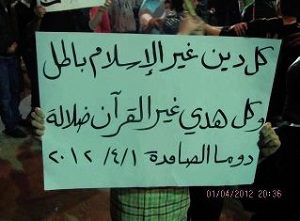 كل دين غير الإسلام باطل
وكل هدي غير القرآن ضلالة
دوما الصامدة ٢٠١٢/٤/١
01/04/2012 20:36